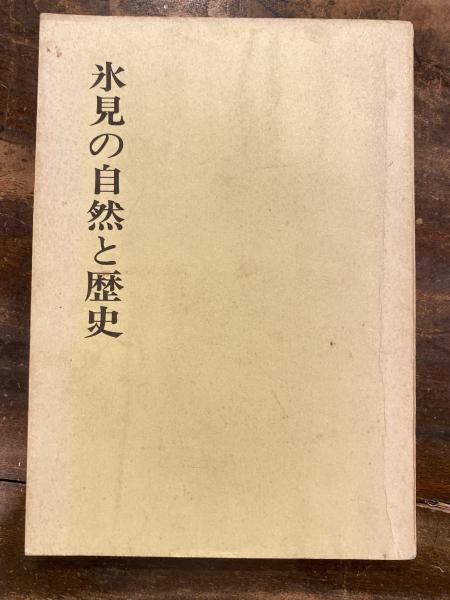 氷見の自然と歴史